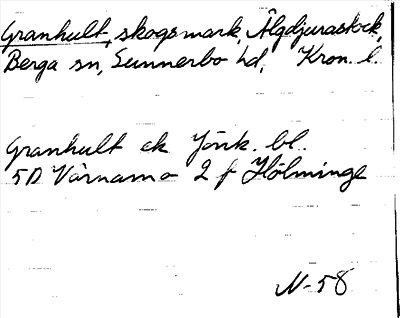 Granhult, skogsmark, Älgdjurastock,
Berga sn, Sunnerbo hd, Kron. l.
Granhult ek Jönk. bl.
5D Värnamo 2 f Hölminge
N-58